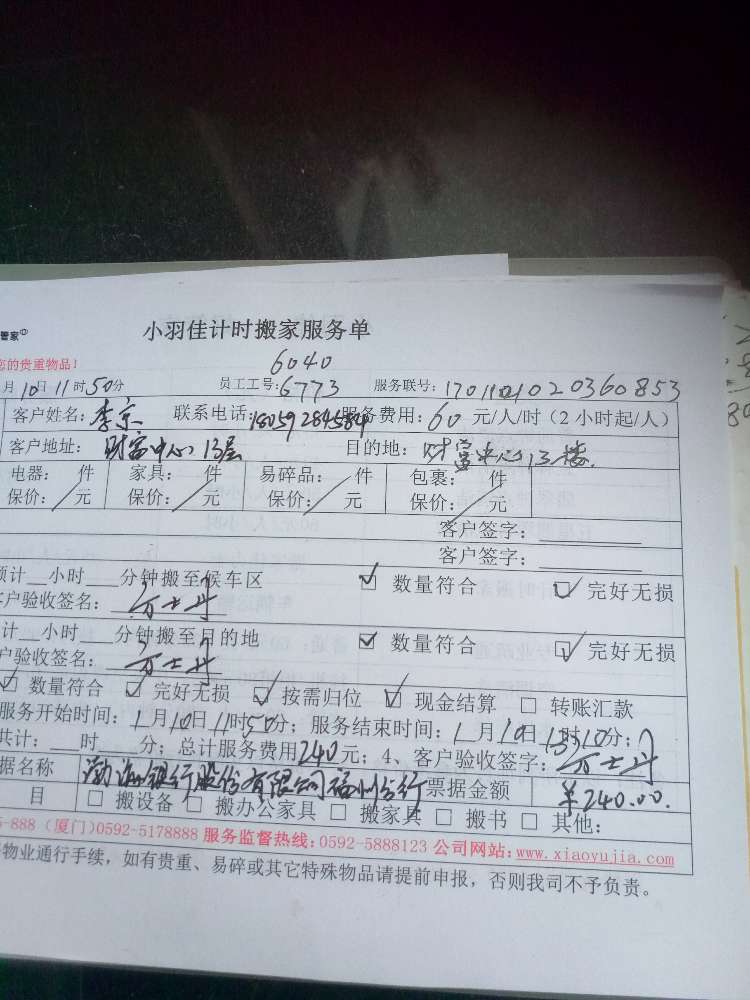 管家
小羽佳计时搬家服务单
您的贵重物品!
6040
月10日11时50分 员工工号:6773 服务联号:17011010 20360853
客户姓名:李京 联系电话:18059284584 服务费用:60元/人/时(2小时起/人)
客户地址:财富中心13层 目的地:财富中心13楼
电器: 件 家具: 件 易碎品: 件 包裹: 件
保价: 元 保价: 元 保价: 元 保价: 元
客户签字:
客户签字:
预计__小时___分钟搬至候车区 ☑ 数量符合 ☑ 完好无损
客户验收签名:
计__小时___分钟搬至目的地 ☑ 数量符合 ☑ 完好无损
户验收签名:
☑ 数量符合 ☑ 完好无损 ☑ 按需归位 ☑ 现金结算 □ 转账汇款
服务开始时间:1月10日11时50分;服务结束时间:1月10日13时10分;
共计:___时___分;总计服务费用240元;4、客户验收签字:
据名称 渤海银行股份有限公司福州分行 票据金额 ¥240.00.
目 □ 搬设备 □ 搬办公家具 □ 搬家具 □ 搬书 □ 其他:
5-888(厦门)0592-5178888 服务监督热线:0592-5888123 公司网站:www.xiaoyujia.com
物业通行手续,如有贵重、易碎或其它特殊物品请提前申报,否则我司不予负责。